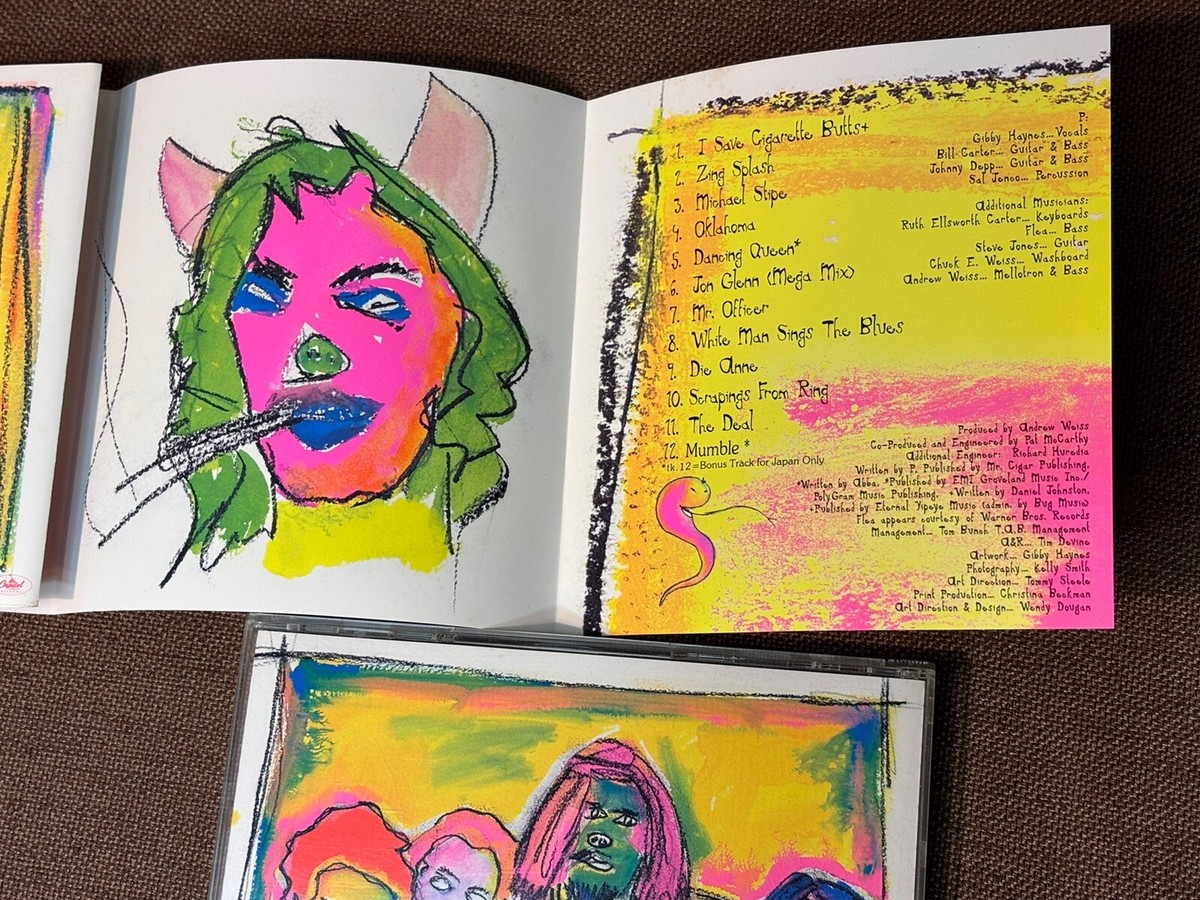 1. I Save Cigarette Butts+
2. Zing Splash
3. Michael Stipe
4. Oklahoma
5. Dancing Queen*
6. Jon Glenn (Mega Mix)
7. Mr. Officer
8. White Man Sings The Blues
9. Die Anne
10. Scrapings From Ring
11. The Deal
12. Mumble *
*tk.12=Bonus Track for Japan Only
P:
Gibby Haynes... Vocals
Bill Carter... Guitar & Bass
Johnny Depp... Guitar & Bass
Sal Jenco... Percussion
Additional Musicians:
Ruth Ellsworth Carter... Keyboards
Flea... Bass
Steve Jones... Guitar
Chuck E. Weiss... Washboard
Andrew Weiss... Mellotron & Bass
Produced by Andrew Weiss
Co-Produced and Engineered by Pat McCarthy
Additional Engineer: Richard Huredia
Written by P. Published by Mr. Cigar Publishing.
*Written by Abba. *Published by EMI Groveland Music Inc./
PolyGram Music Publishing. +Written by Daniel Johnston.
+Published by Eternal Yipeye Music (admin. by Bug Music)
Flea appears courtesy of Warner Bros. Records
Management... Tom Bunch T.A.B. Management
A&R... Tim Devine
Artwork... Gibby Haynes
Photography... Kelly Smith
Art Direction... Tommy Steele
Print Production... Christina Beekman
Art Direction & Design... Wendy Dougan
Capitol